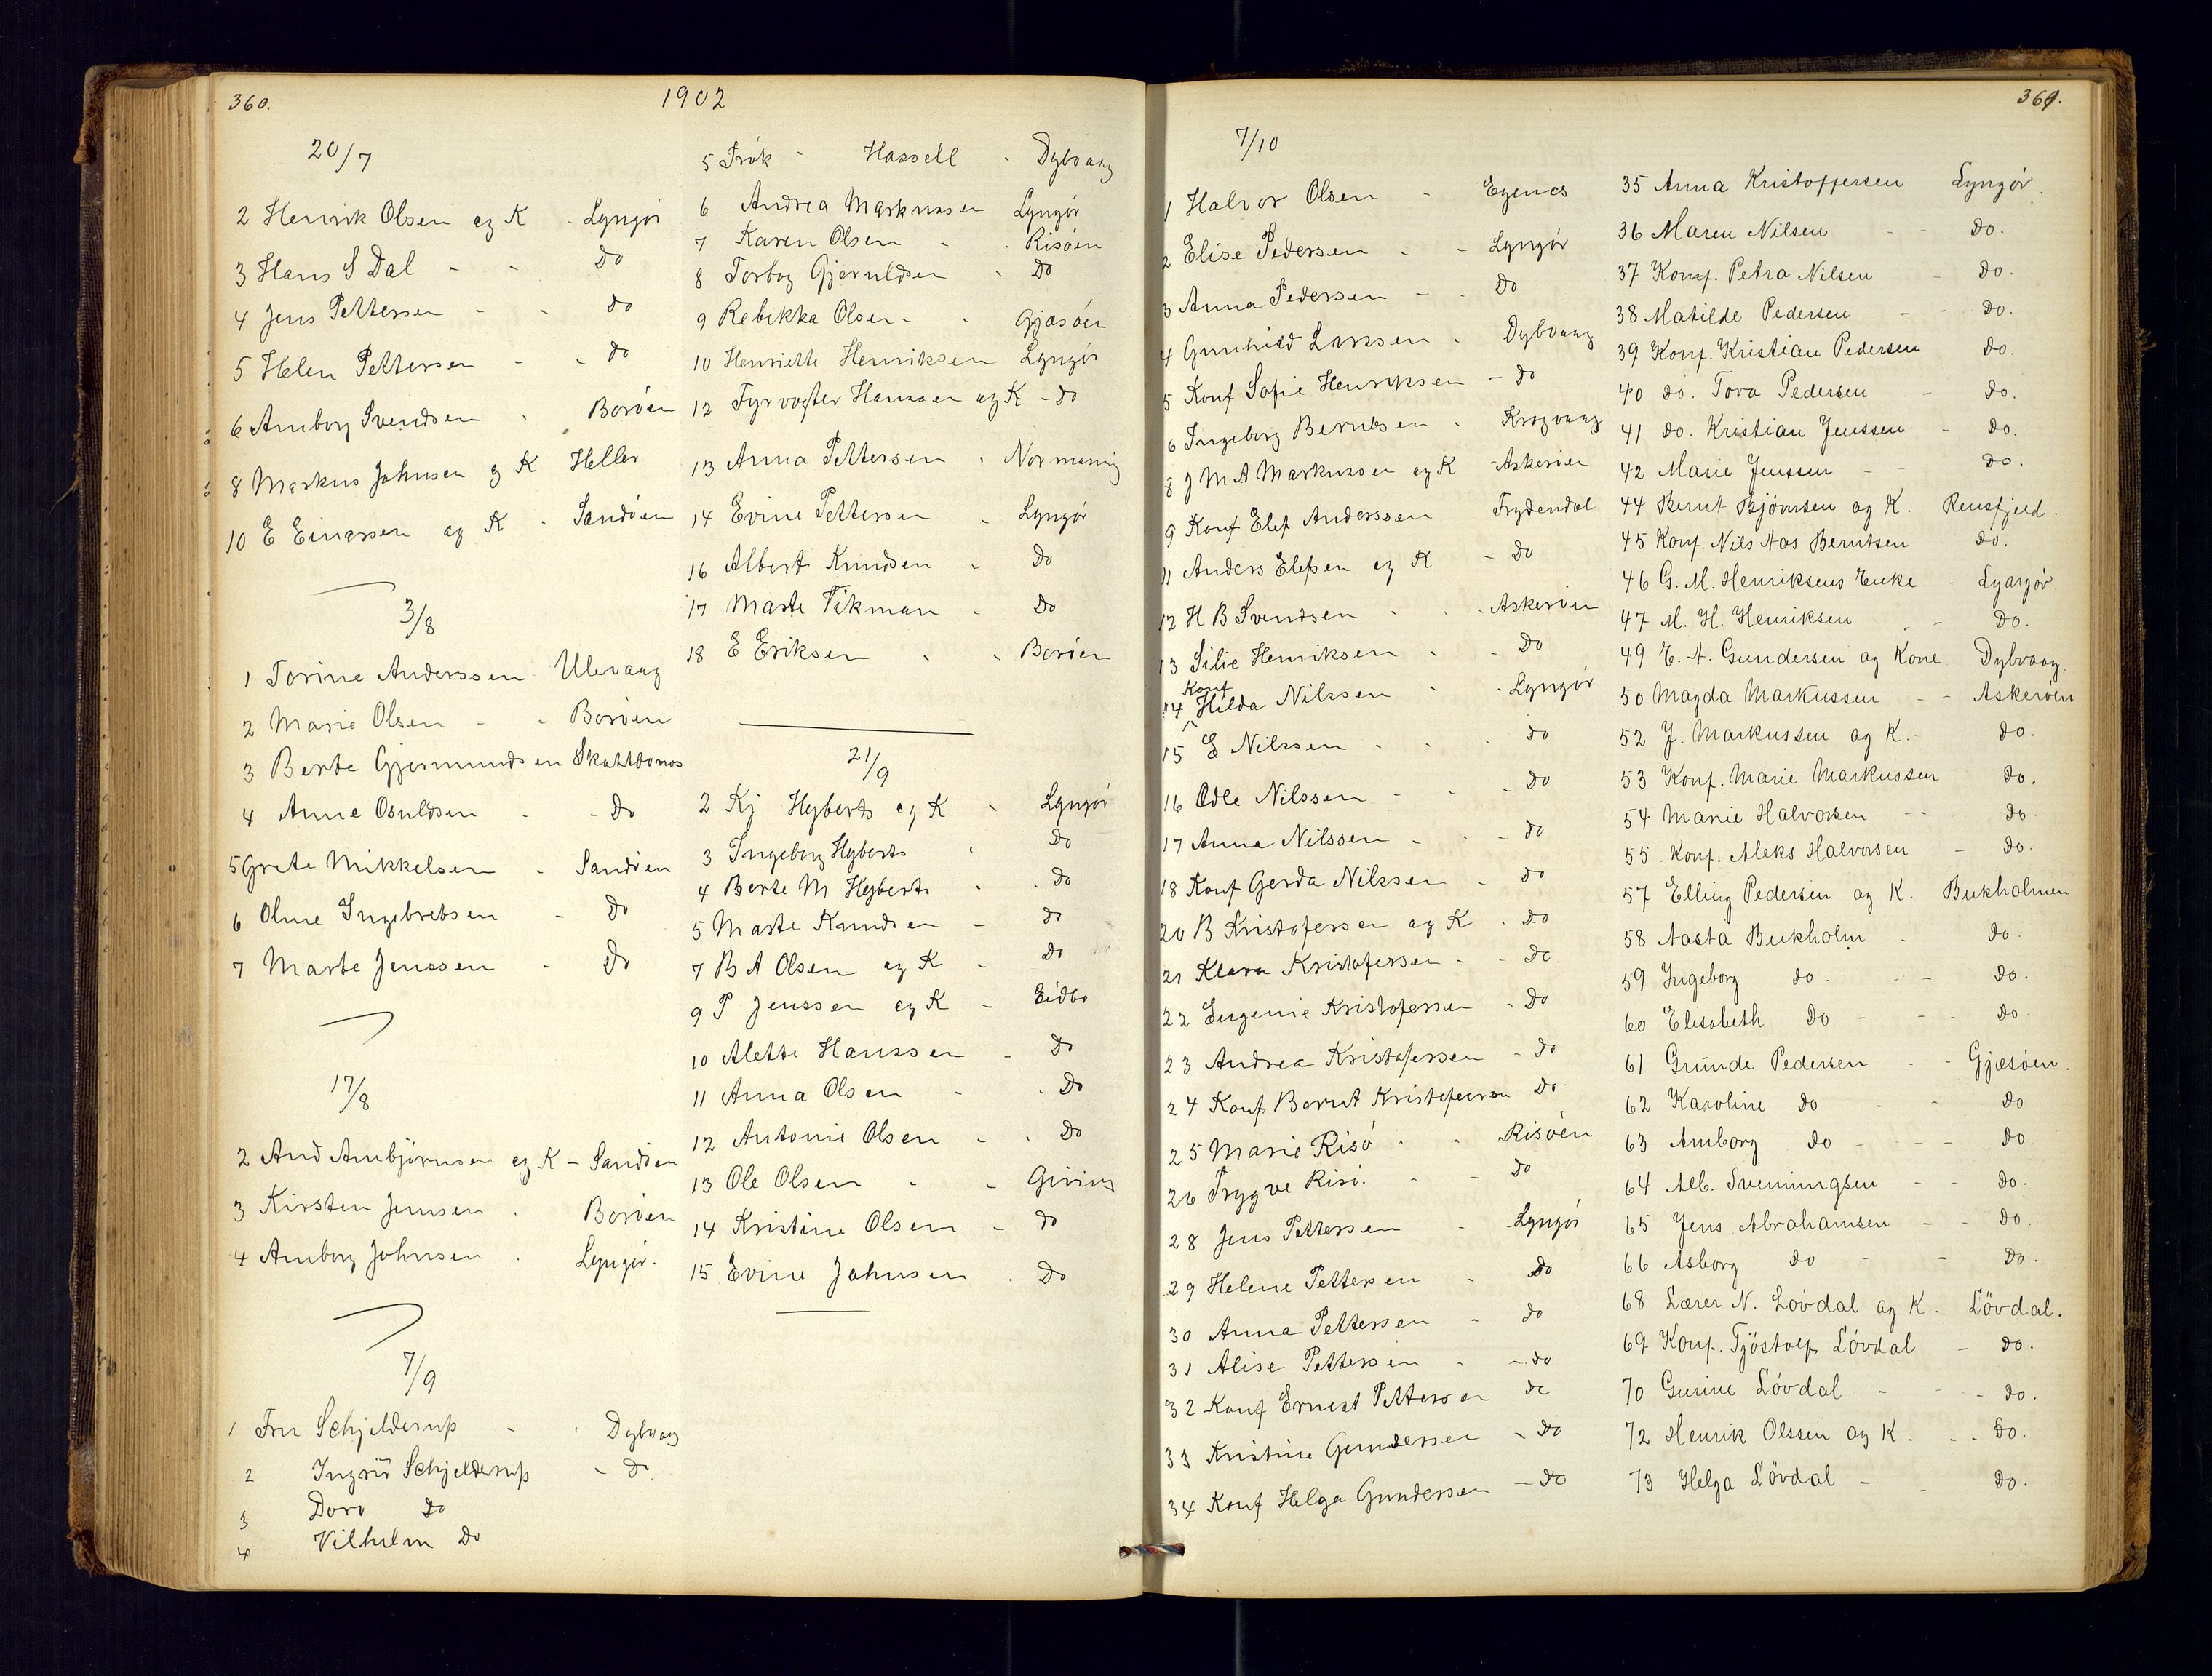 360.
1902
20/7
2 Henrik Olsen og K - Lyngör
3 Hans S Dal - - Do
4 Jens Pettersen - - Do
5 Helen Pettersen - - Do
6 Amborg Svendsen - Boröen
8 Markus Johnsen og K Heller
10 E Einarsen og K - Sandöen
3/8
1 Torine Anderssen Ulevaag
2 Marie Olsen - - Boröen
3 Berte Gjermundsen
4 Anne Osuldsen - - Do
5 Grete Mikkelsen - Sandöen
6 Olme Ingebretsen - Do
7 Marte Jenssen - Do
17/8
2 And Ambjörnsen og K - Sandöen
3 Kirsten Jensen - Boröen
4 Amborg Johnsen - Lyngör.
7/9
1 Fru Schjelderup - - Dybvaag
2 Ingrid Schjelderup - Do
3 Do
4 Vilhelm Do
5 Frök - Hassell - Dybvaag
6 Andrea Markussen Lyngör
7 Karen Olsen - - Risöen
8 Torbog Gjeruldsen - Do
9 Rebekka Olsen - - Gjæsöen
10 Henriette Henriksen Lyngör
12 Fyrvogter Hansen og K - Do
13 Anna Pettersen -
14 Evine Pettersen - Lyngör
16 Albert Knudsen - Do
17 Marte Tikman - Do
18 E Eriksen - - Boröen
21/9
2 Kj Hyberts og K - Lyngör
3 Ingeborg Hyberts - Do
4 Berte M Hyberts - - Do
5 Marte Knudsen - Do
7 B A Olsen og K - Do
9 P Jenssen og K - Eidbo
10 Alette Hanssen - Do
11 Anna Olsen - - Do
12 Antonie Olsen - - Do
13 Ole Olsen - -
14 Kristine Olsen - Do
15 Evine Johnsen - Do
361.
7/10
1 Halvor Olsen - Egenes
2 Elise Pedersen - - Lyngör
3 Anna Pedersen - - Do
4 Gunhild Larssen - Dybvaag
5 Konf Sofie Henriksen - Do
6 Ingeborg Berntsen - Krogvaag
8 J M A Markussen og K - Askeröen
9 Konf Elef Anderssen Frydendal
11 Anders Elefsen og K - Do
12 H B Svendsen - - Askeröen
13 Silie Henriksen - - Do
14 Konf Hilda Nilssen - - Lyngör
15 E Nilssen - - - Do
16 Odle Nilssen - - - Do
17 Anna Nilssen - - - Do
18 Konf Gerda Nilssen - - Do
20 B Kristofersen og K - Do
21 Klara Kristofersen - - Do
22 Eugenie Kristofersen - Do
23 Andrea Kristofersen - Do
24 Konf Bernt Kristofersen Do
25 Marie Risö - - Risöen
26 Trygve Risö. - - Do
28 Jens Pettersen - - Lyngör
29 Helene Pettersen - Do
30 Anna Pettersen - Do
31 Alise Pettersen - - Do
32 Konf Ernest Pettersen Do
33 Kristine Gundersen - Do
34 Konf Helga Gundersen - Do
35 Anna Kristoffersen Lyngör.
36 Maren Nilsen - - Do.
37 Konf. Petra Nilsen - Do.
38 Matilde Pedersen - - Do.
39 Konf. Kristian Pedersen Do.
40 Do. Tora Pedersen - Do.
41 Do. Kristian Jenssen - Do.
42 Marie Jenssen - - Do.
44 Bernt Bjönnsen og K. Rensfjeld.
45 Konf. Nils Aas Berntsen Do.
46 G. M. Henriksens Enke - Lyngör
47 M. H. Henriksen - - Do.
49 E. A. Gundersen og Kone Dybvaag.
50 Magda Markussen - - Askeröen
52 J. Markussen og K. - Do.
53 Konf. Marie Markussen Do.
54 Marie Halvorsen - - Do.
55. Konf. Aleks Halvorsen - Do.
57 Elling Pedersen og K. Bukholmen
58 Aasta Bukholm - Do.
59 Ingeborg Do. - - Do.
60 Elisabeth Do - - - Do.
61 Grunde Pedersen - - Gjæsöen.
62 Karoline Do - - Do
63 Amborg Do - - - Do.
64 Alb. Svenningsen - - Do.
65 Jens Abrahamsen - - Do.
66 Asborg Do - - Do.
68 Lærer N. Lövdal og K. Lövdal.
69 Konf. Tjöstolf Lövdal - Do.
70 Gurine Lövdal - - - Do.
72 Henrik Olssen og K. - - Do.
73 Helga Lövdal - - Do.